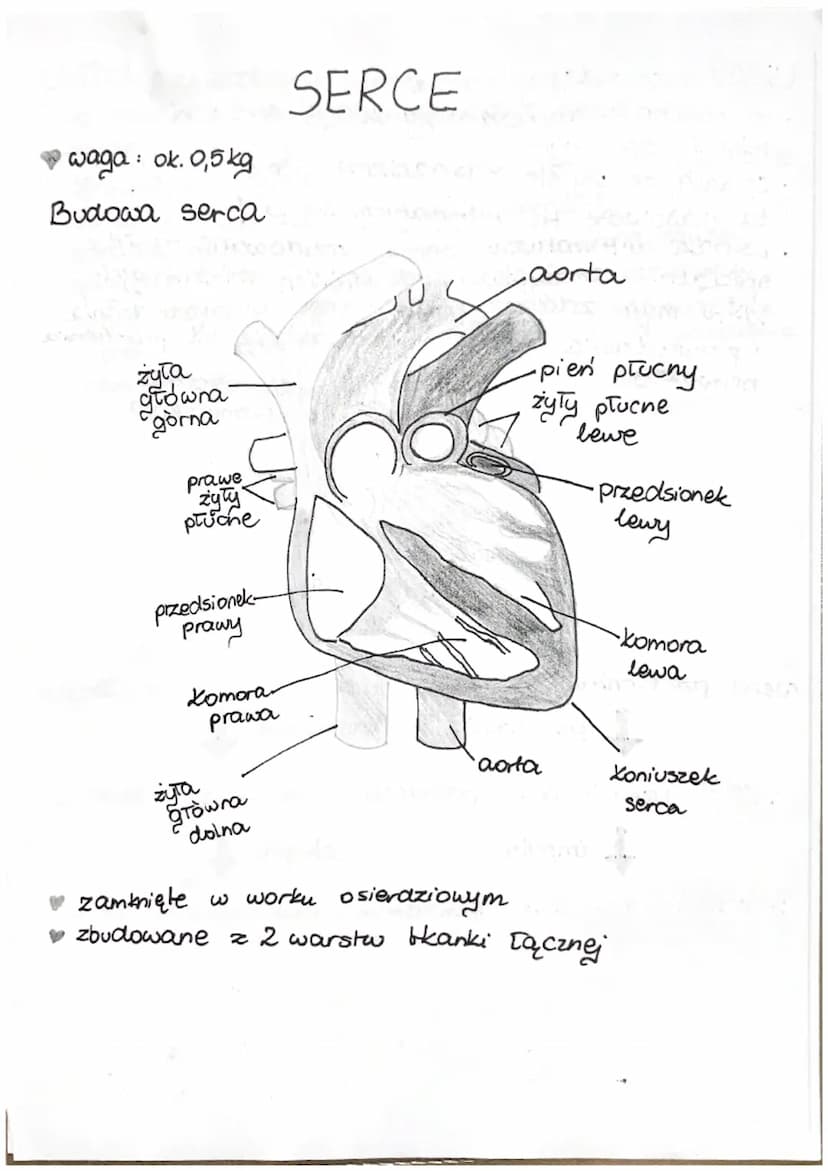 SERCE
waga: ok. 0,5kg
Budowa serca
aorta
żyła
główna
górna
pień płucny
żyły płucne
lewe
prawe
żyły
płucne
przedsionek
lewy
przedsionek
prawy
komora
lewa
komora
prawa
aorta
koniuszek
serca
żyła
główna
dolna
zamknięte w worku osierdziowym
zbudowane z 2 warstw tkanki łącznej